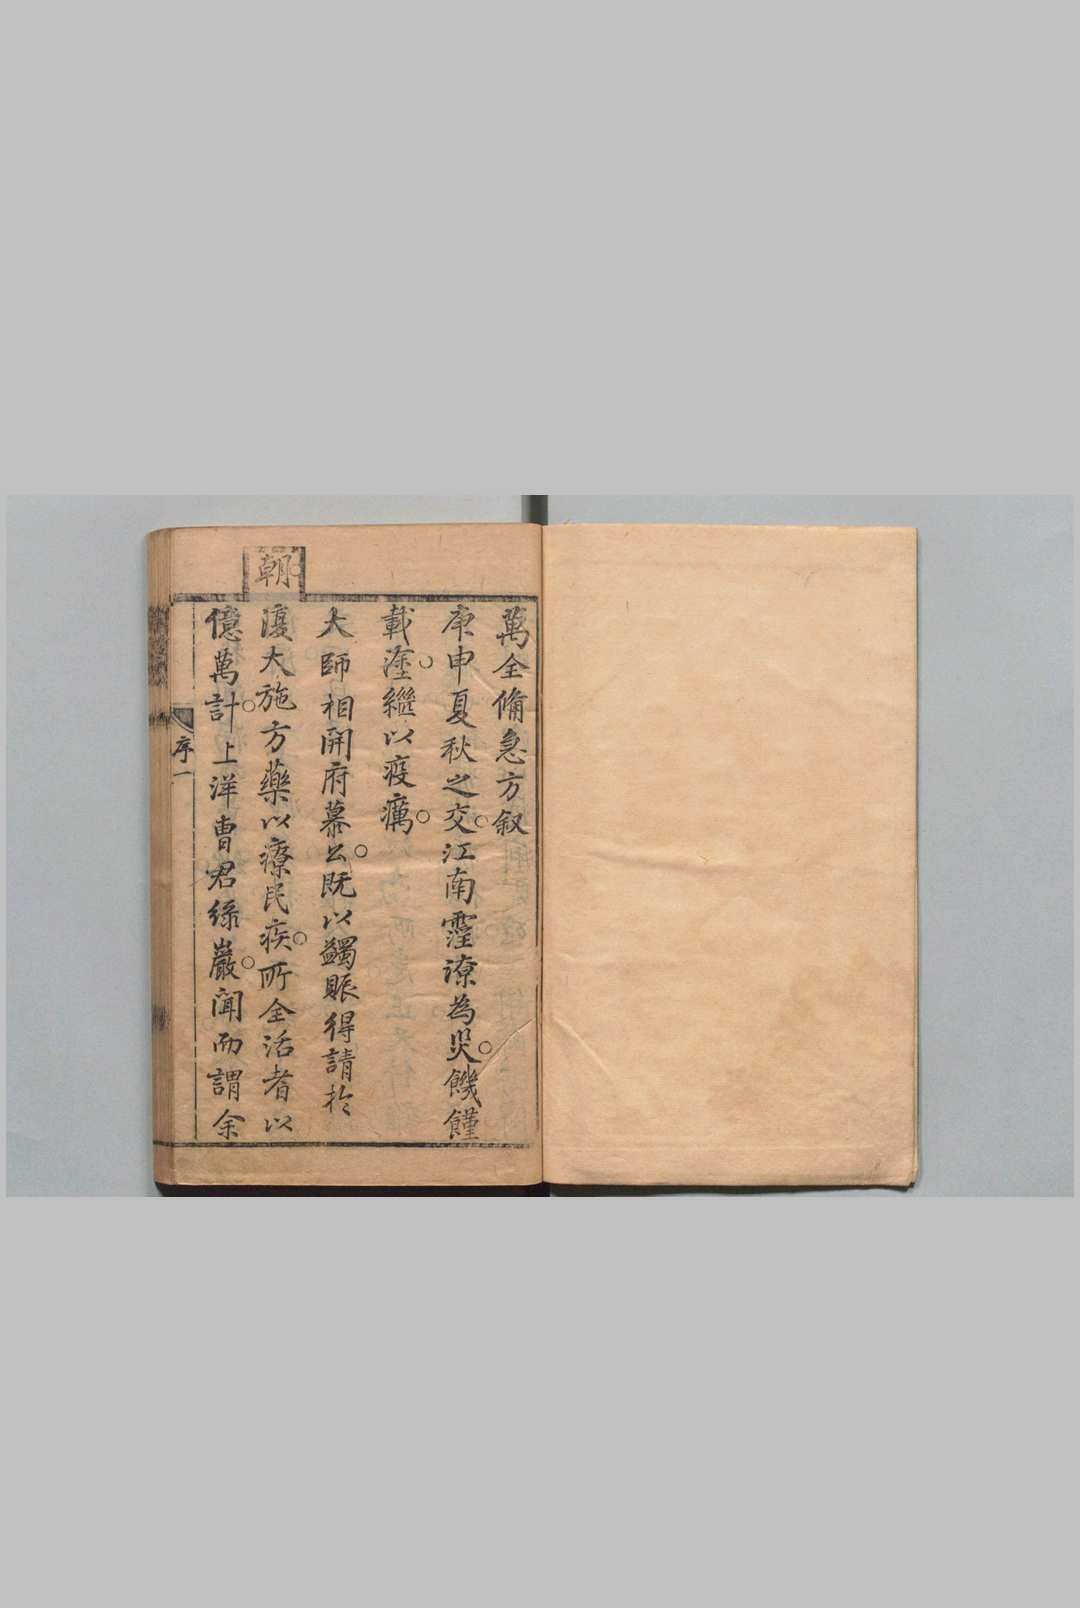 萬全備急方叙
庚申夏秋之交。江南霪潦為災。饑饉
載塗。繼以疫癘。
大師相開府慕公。既以蠲賑得請於
朝
復大施方藥以療民疾。所全活者以
億萬計。上洋曹君緑巖。聞而謂余
序一